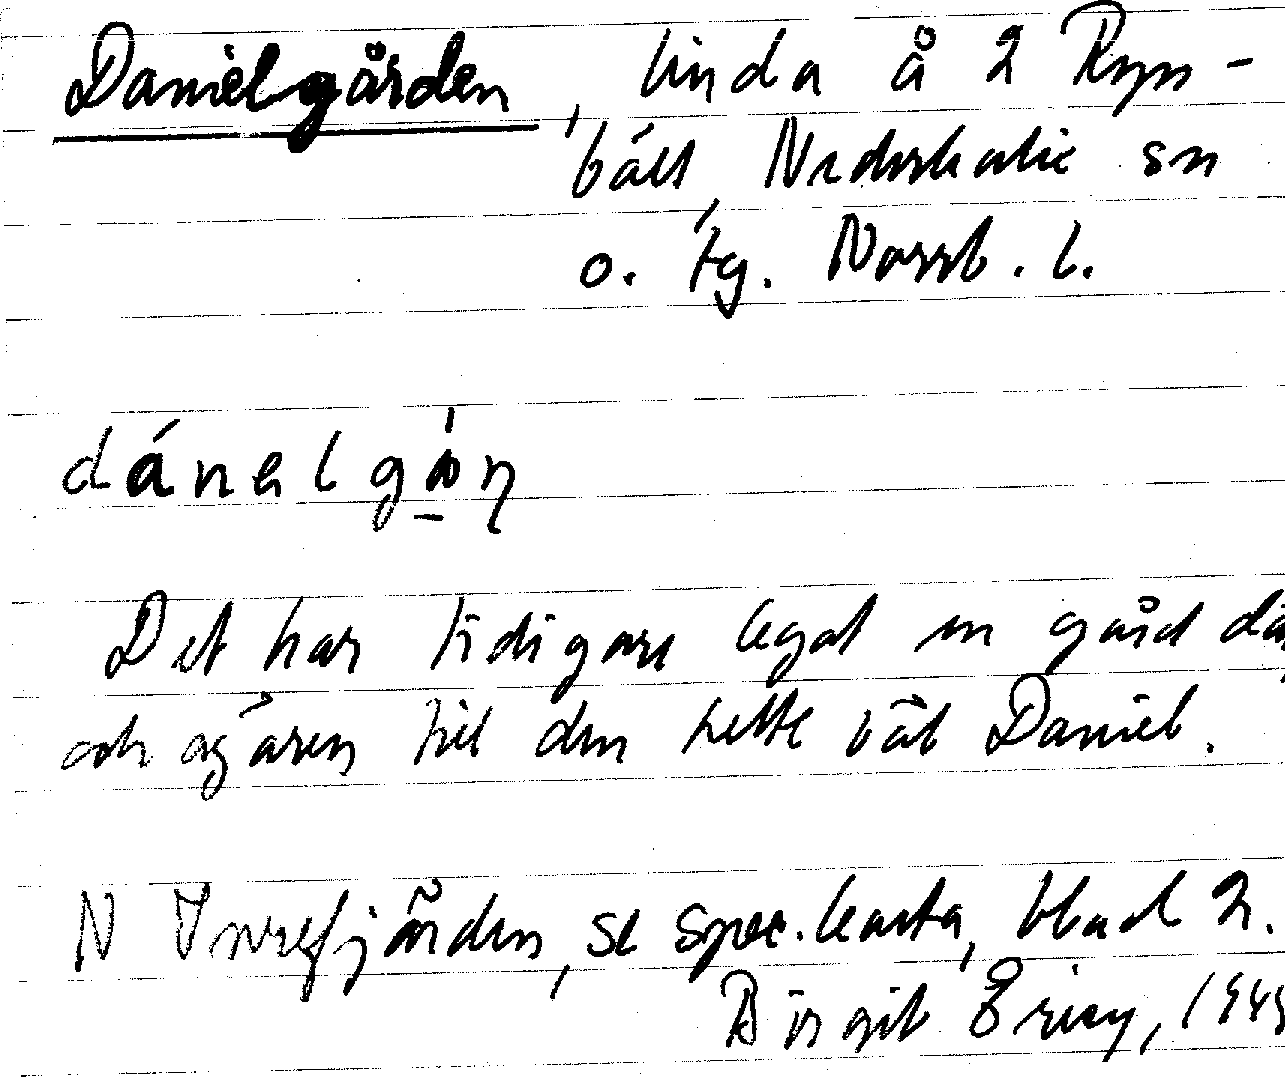 Danielgården, linda å 2 Ryss-
bält, Nederkalix sn
o. tg. Norrb. l.
dánelgǻn
Det har tidigare legat en gård där
och ägaren till den hette väl Daniel.
N Inrefjärden, se spec.karta, blad 2.
Birgit